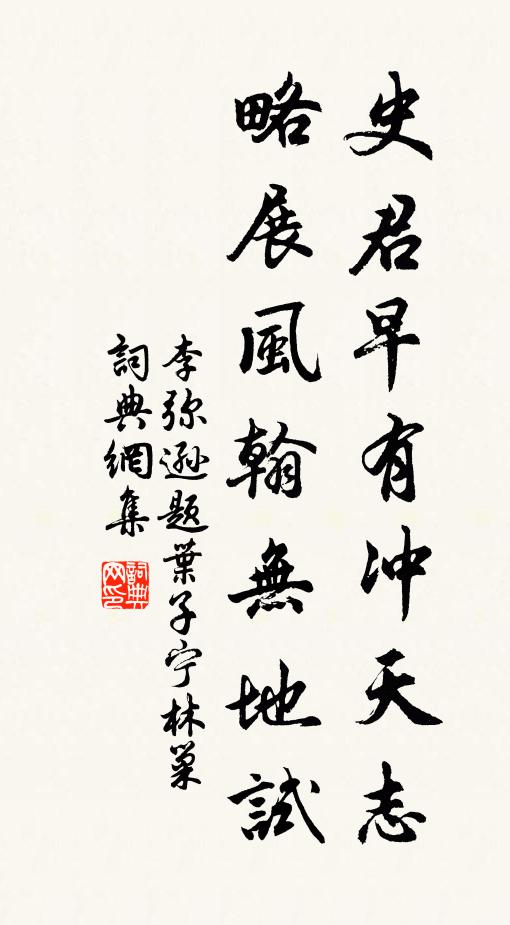 史君早有冲天志
略展風翰無地試
李弥遜题葉子宁林巢
詞典網集
詞典网印